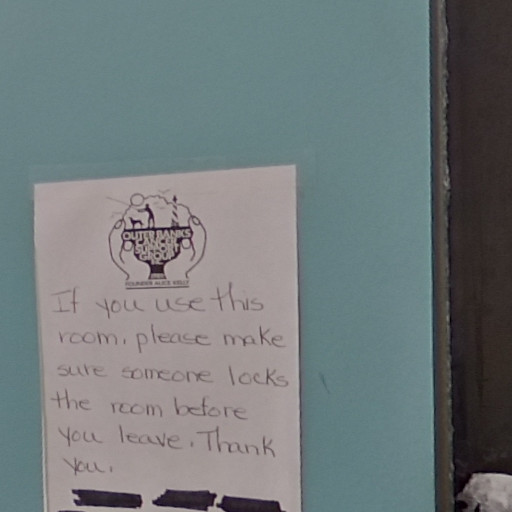 OUTER BANKS
CANCER
SUPPORT
GROUP
FOUNDER ALICE KELLY
If you use this
room, please make
sure someone locks
the room before
you leave. Thank
you.